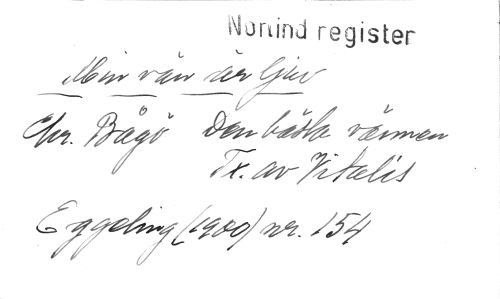 Norlind register
Min vän är ljuv
Chr. Bågö Den bästa vännen
Tx. av Vitalis
Eggeling (1900) nr. 154